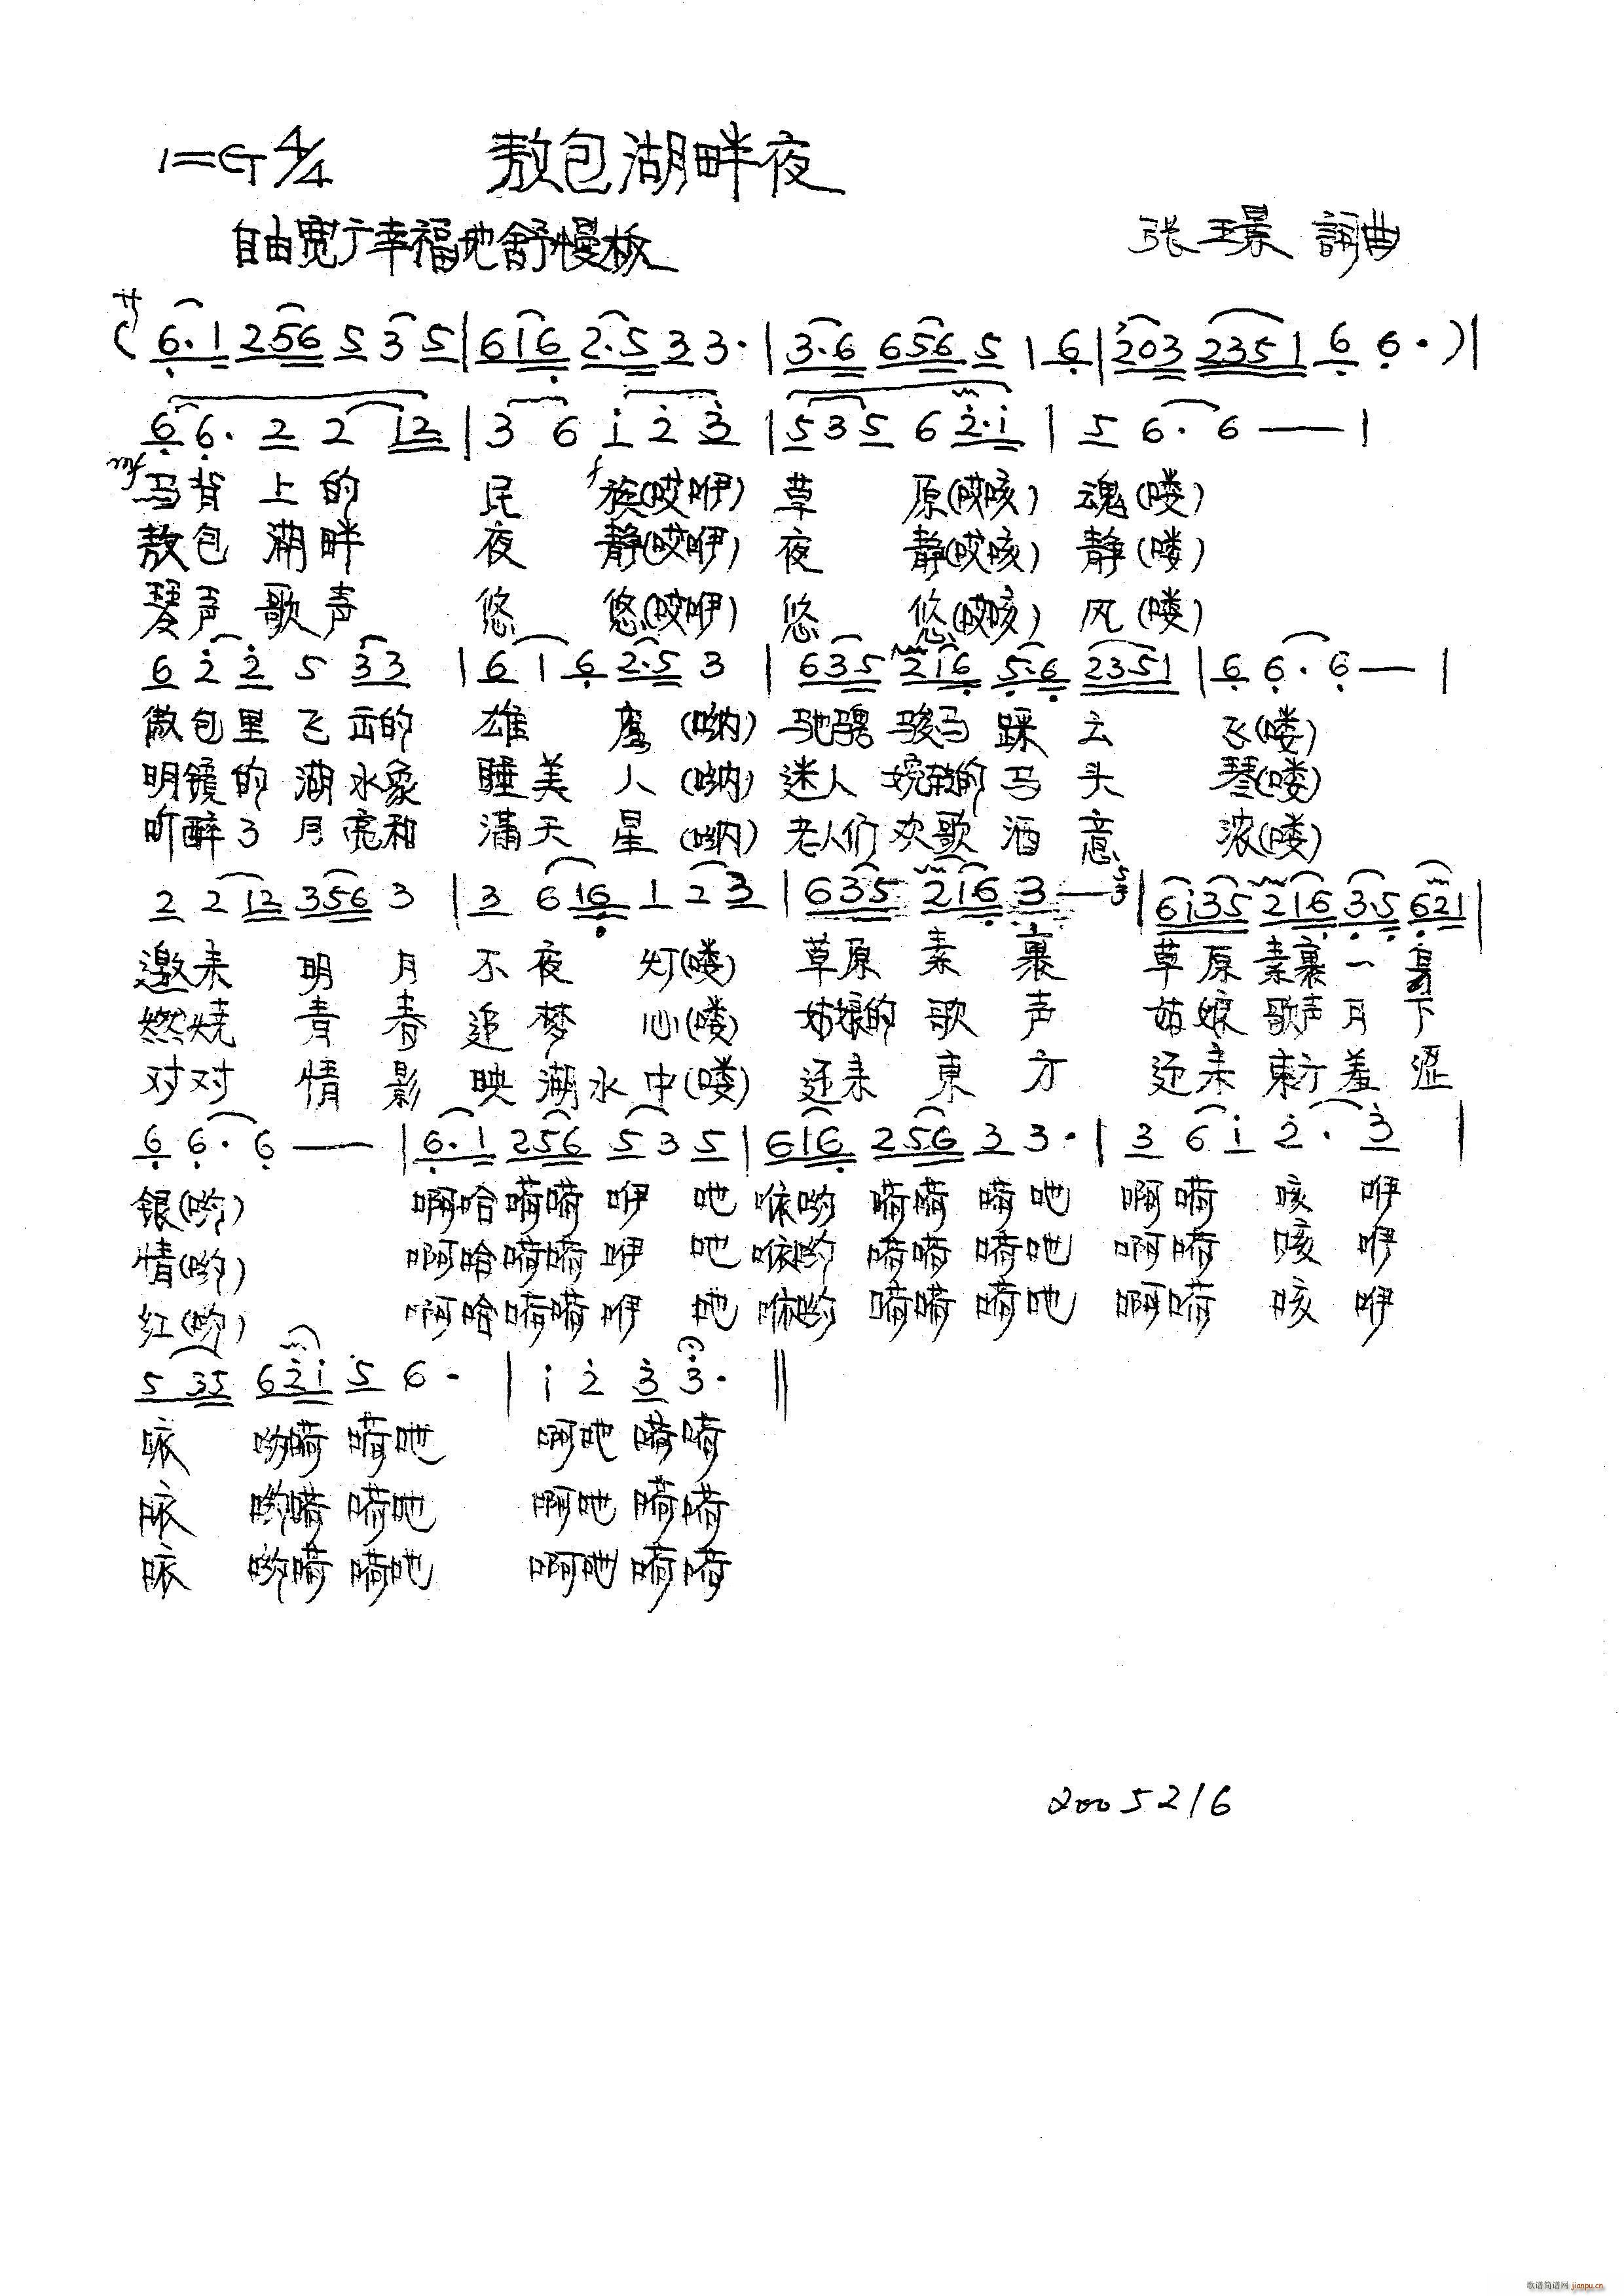 1=G 4/4 敖包湖畔夜
自由宽广幸福地舒慢板 张玉景 詞曲
サ
( 6·1 256 5 3 5 | 616 2·5 3 3· | 3·6 656 5 1 6 | 203 2351 6 6· ) |
6 6· 2 2 12 | 3 6 i 2 3 | 535 6 2·i | 5 6· 6 — |
mf 马背 上的 民 f 族(哎咿) 草 原(哎咳) 魂(喽)
敖包 湖畔 夜 静(哎咿) 夜 静(哎咳) 静(喽)
琴声 歌声 悠 悠(哎咿) 悠 悠(哎咳) 风(喽)
6 2 2 5 33 | 6 1 6 2·5 3 | 635 216 5·6 2351 | 6 6· 6 — |
傲包里 飞出的 雄 鹰 (呐) 驰骋 骏马 踩 云 飞(喽)
明镜的 湖水象 睡美 人 (呐) 迷人 婉转的 马 头 琴(喽)
听醉了 月亮和 满天 星 (呐) 老人们 欢歌 酒 意 浓(喽)
2 2 12 356 3 | 3 6 16 1 2 3 | 635 216 3 — | 6i35 216 3·5 621 |
邀来 明 月 不 夜 灯(喽) 草原 素 裹 草 原 素裹 一 身
燃烧 青 春 追 梦 心(喽) 姑娘的 歌 声 姑 娘 歌声 月 下
对对 情 影 映 湖水中(喽) 还来 東 方 还 来 東方 羞 涩
6 6· 6 — | 6·1 256 5 3 5 | 616 256 3 3· | 3 6 i 2· 3 |
银(哟) 啊哈 嗬嗬 咿 吔 喉哟 嗬嗬 嗬吔 啊嗬 咳 咿
情(哟) 啊哈 嗬嗬 咿 吔 喉哟 嗬嗬 嗬吔 啊嗬 咳 咿
红(哟) 啊哈 嗬嗬 咿 吔 喉哟 嗬嗬 嗬吔 啊嗬 咳 咿
5 35 62i 5 6· | i 2 3 3· ‖
哟嗬 嗬吔 啊吔 嗬嗬
哟嗬 嗬吔 啊吔 嗬嗬
哟嗬 嗬吔 啊吔 嗬嗬
2005216
歌谱简谱网 jianpu.cn